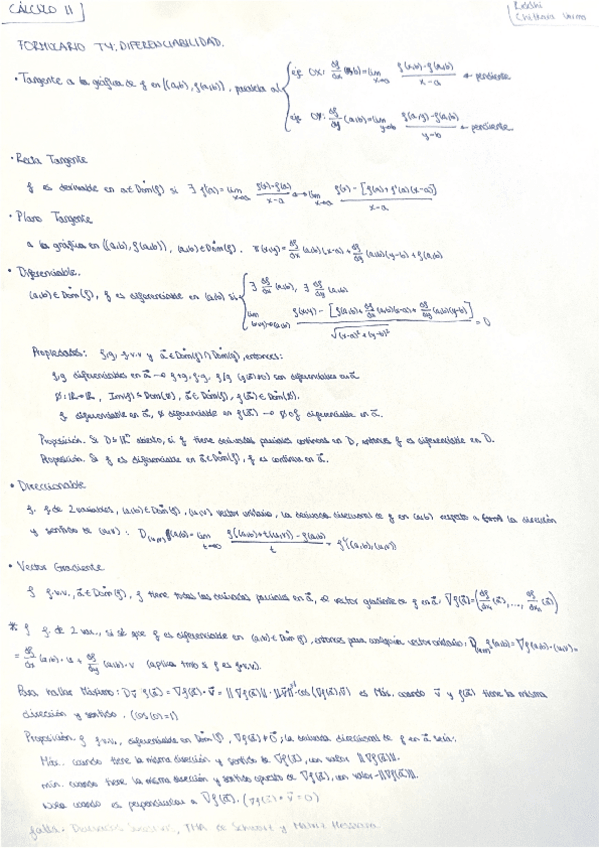 CÁLCULO II
Riddhi
Chittana Varma
FORMULARIO T4: DIFERENCIABILIDAD.
· Tangente a la gráfica de f en ((a,b), f(a,b)), paralela al
eje OX: ∂f/∂x (a,b) = lim x→a f(x,b)-f(a,b) / x-a ← pendiente
eje OY: ∂f/∂y (a,b) = lim y→b f(a,y)-f(a,b) / y-b ← pendiente
· Recta Tangente
f es derivable en a∈Dom(f) si ∃ f'(a) = lim x→a f(x)-f(a) / x-a ↔ lim x→a f(x) - [f(a)+f'(a)(x-a)] / x-a
· Plano Tangente
a la gráfica en ((a,b), f(a,b)), (a,b)∈Dom(f). π(x,y) = ∂f/∂x (a,b)(x-a) + ∂f/∂y (a,b)(y-b) + f(a,b)
· Diferenciable.
(a,b)∈Dom(f), f es diferenciable en (a,b) si
∃ ∂f/∂x (a,b), ∃ ∂f/∂y (a,b)
lim (x,y)→(a,b) f(x,y) - [f(a,b) + ∂f/∂x (a,b)(x-a) + ∂f/∂y (a,b)(y-b)] / √(x-a)²+(y-b)² = 0
Propiedades: f,g f.v.v y a⃗ ∈ Dom(f)∩Dom(g), entonces:
f,g diferenciables en a⃗ → f+g, f·g, f/g (g(a⃗)≠0) son diferenciables en a⃗
Ø: ℝ→ℝ, Im(f) ⊆ Dom(Ø), a⃗∈Dom(f), f(a⃗)∈Dom(Ø).
f diferenciable en a⃗, Ø diferenciable en f(a⃗) → Ø∘f diferenciable en a⃗.
Proposición. Si D⊆ℝⁿ abierto, si f tiene derivadas parciales continuas en D, entonces f es diferenciable en D.
Proposición. Si f es diferenciable en a⃗∈Dom(f), f es continua en a⃗.
· Direccionable
f. f de 2 variables, (a,b)∈Dom(f), (u,v) vector unitario, la derivada direccional de f en (a,b) respecto a la dirección
y sentido de (u,v): D(u,v) f(a,b) = lim t→0 f((a,b)+t(u,v)) - f(a,b) / t = f'((a,b),(u,v))
· Vector Gradiente
f f.v.v., a⃗∈Dom(f), f tiene todas las derivadas parciales en a⃗, el vector gradiente de f en a⃗: ∇f(a⃗) = (∂f/∂x₁ (a⃗), ..., ∂f/∂xₙ (a⃗))
* f f. de 2 var., si sé que f es diferenciable en (a,b)∈Dom(f), entonces para cualquier vector unitario: D(u,v) f(a,b) = ∇f(a,b)·(u,v) =
= ∂f/∂x (a,b)·u + ∂f/∂y (a,b)·v (aplica tmb si f es f.v.v.).
Para hallar Máximo: Dv⃗ f(a⃗) = ∇f(a⃗)·v⃗ = ||∇f(a⃗)||·||v⃗||·cos(∇f(a⃗),v⃗) es Máx. cuando v⃗ y f(a⃗) tiene la misma
dirección y sentido. (cos(0)=1)
Proposición. f f.v.v., diferenciable en Dom(f), ∇f(a⃗)≠0⃗, la derivada direccional de f en a⃗ será:
Máx. cuando tiene la misma dirección y sentido de ∇f(a⃗), con valor ||∇f(a⃗)||.
mín. cuando tiene la misma dirección y sentido opuesto de ∇f(a⃗), con valor -||∇f(a⃗)||.
Nula cuando es perpendicular a ∇f(a⃗). (∇f(a⃗)·v⃗=0)
falta: Derivadas Sucesivas, TMA de Schwarz y Matriz Hessiana.